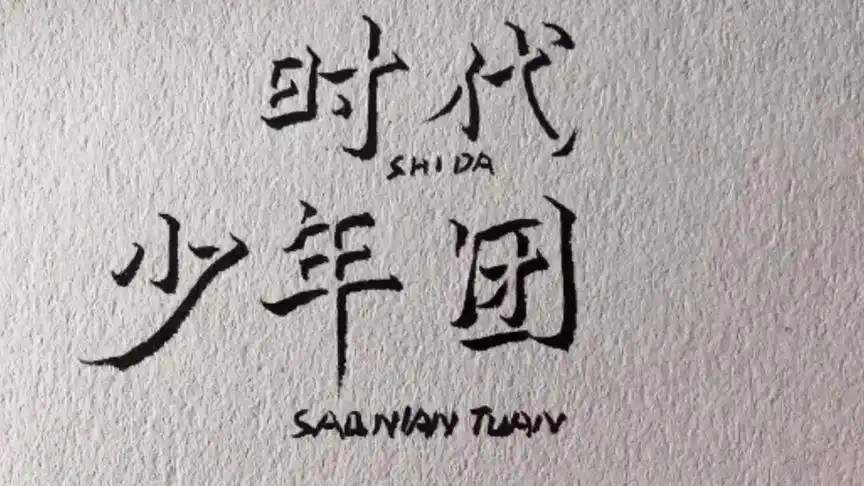 时代
SHIDA
少年团
SAONIAN TUAN